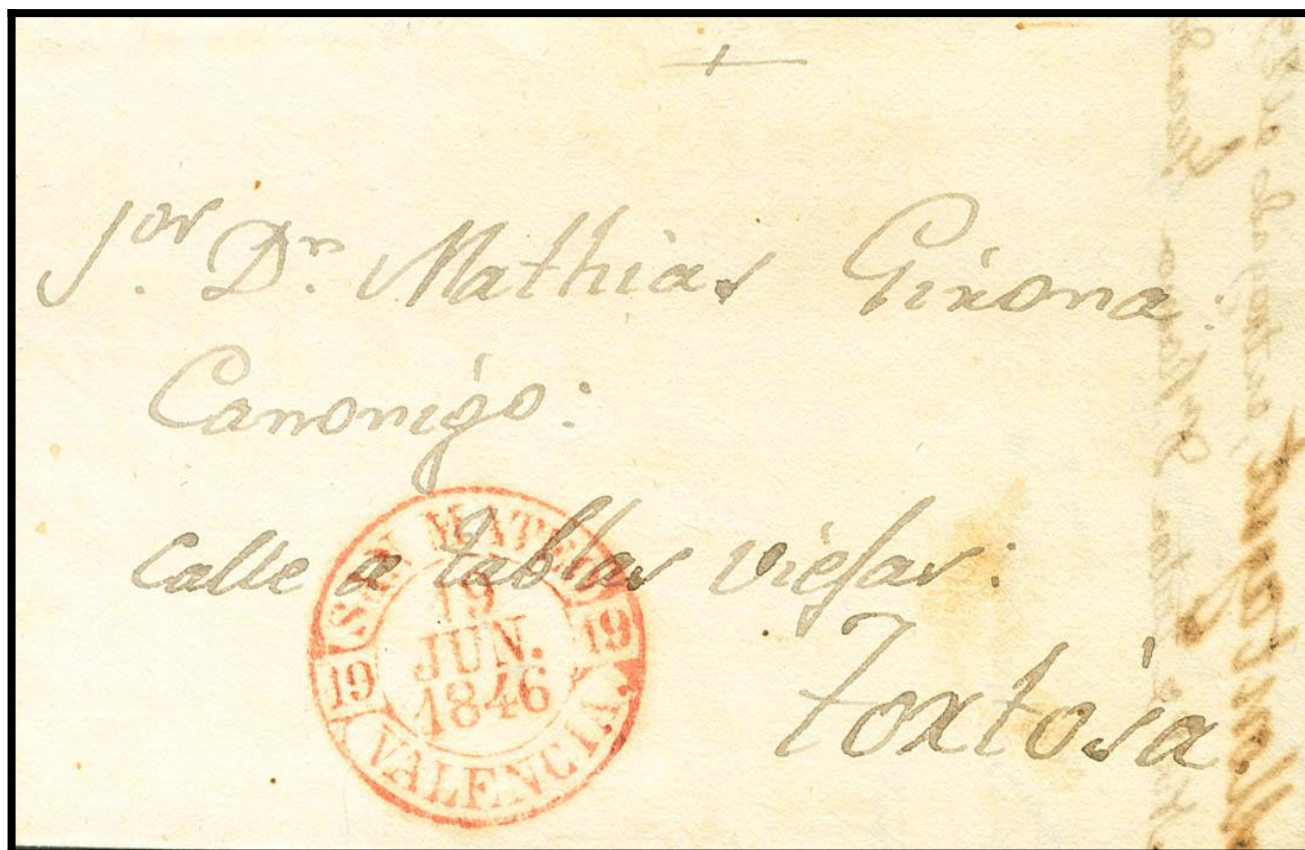 Sor. Dn. Mathias Girona:
Canonigo:
Calle de tablas viejas:
Tortosa.
SAN MATEO
19
JUN.
1846
19 19
VALENCIA.